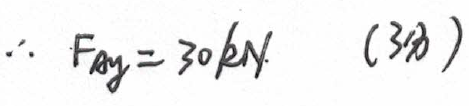 ∴ F_Ay = 30kN. (3分)